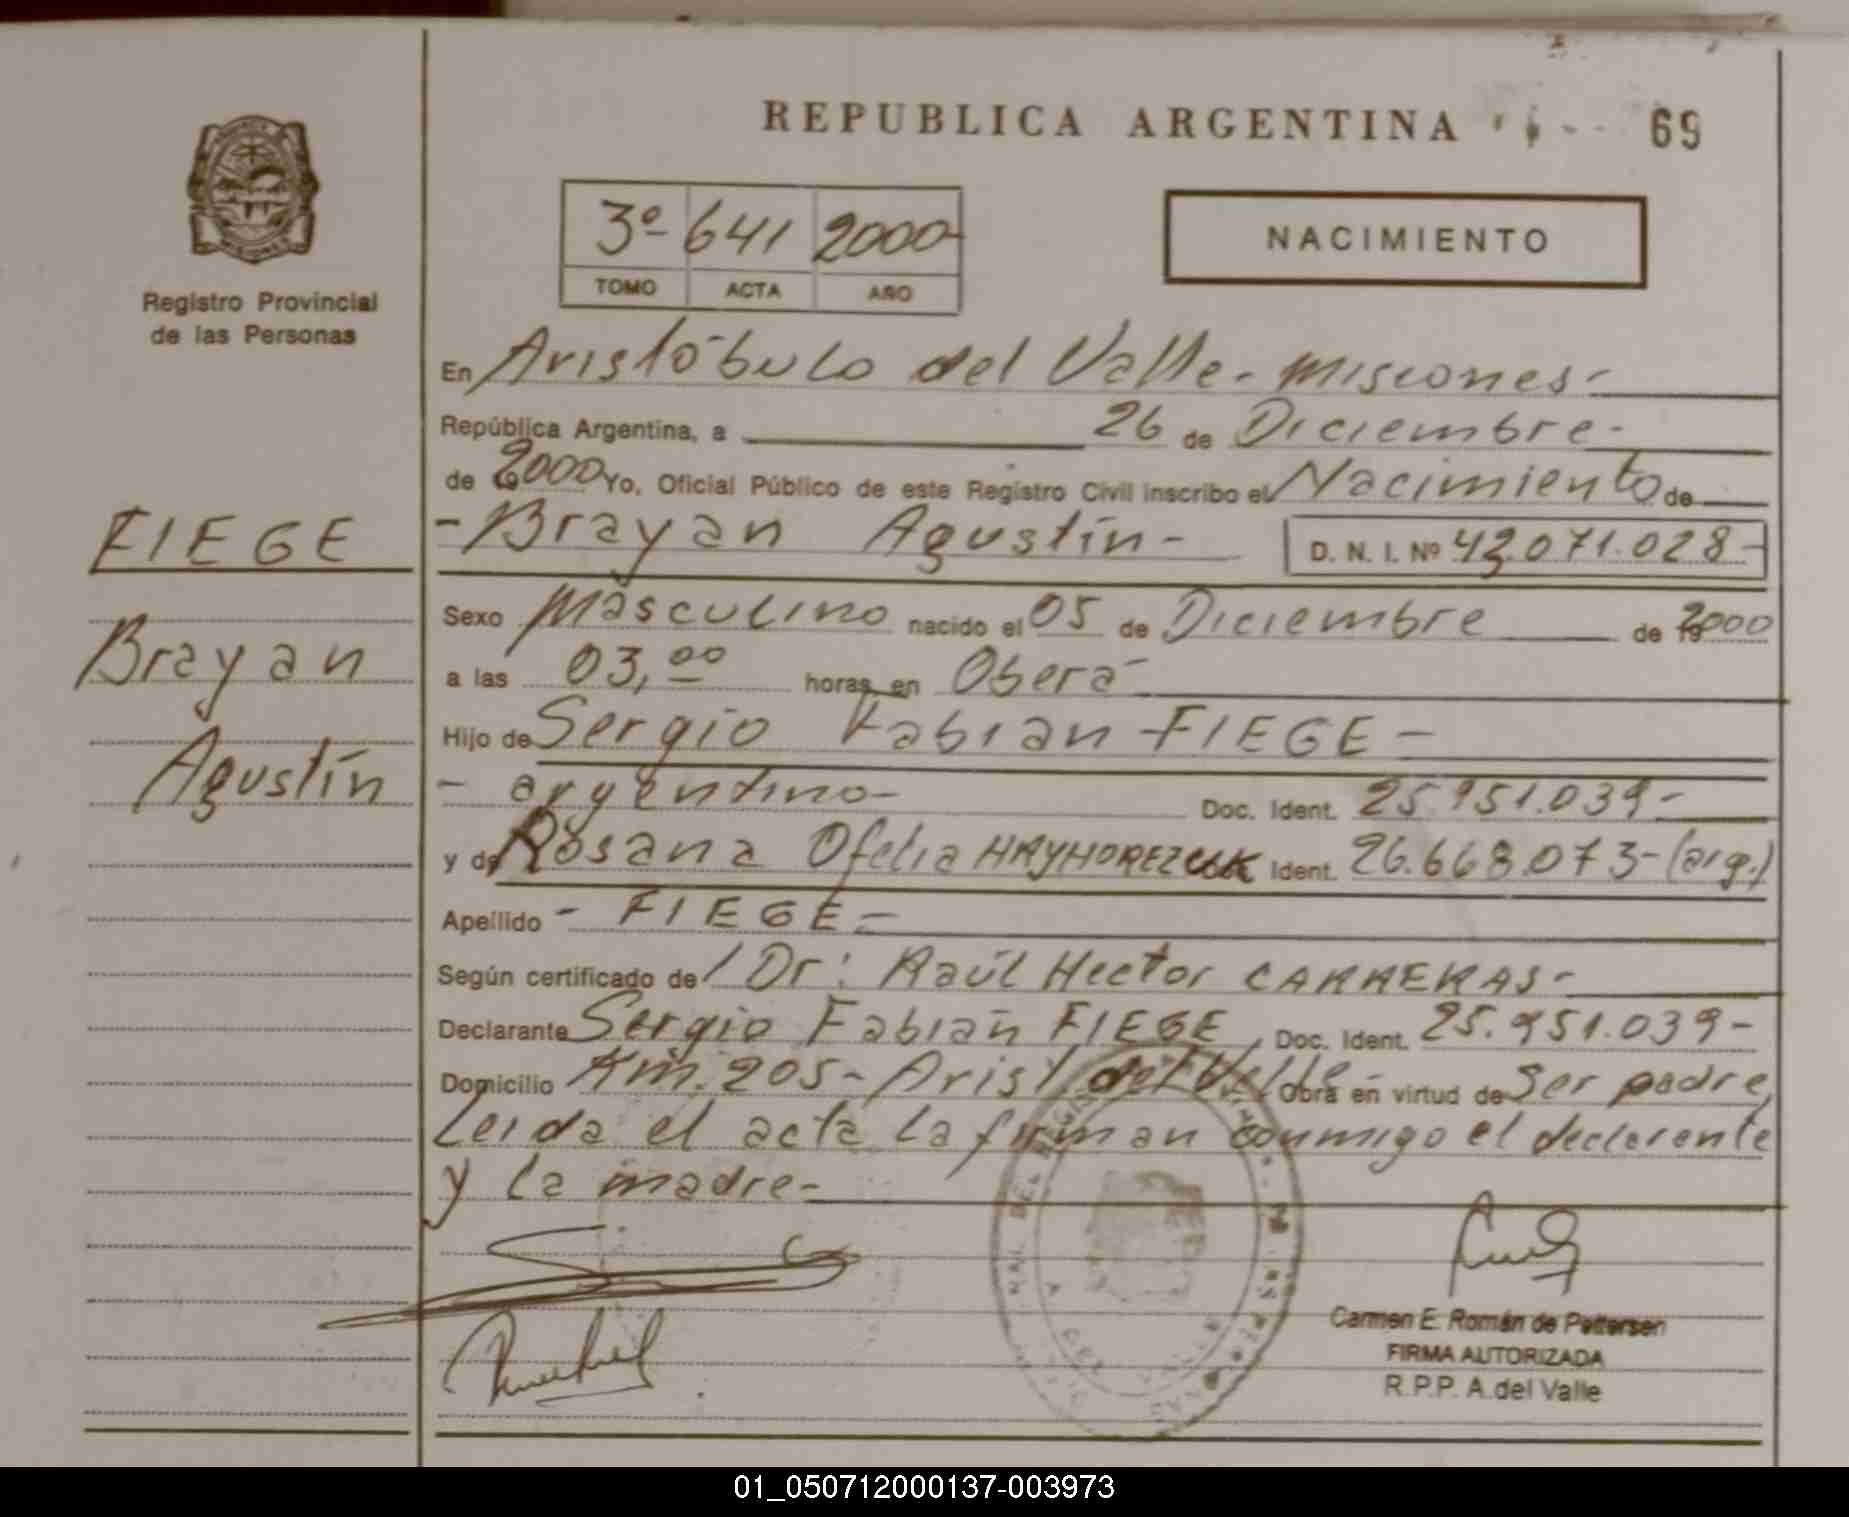 REPUBLICA ARGENTINA 69
3º 641 2000-
TOMO ACTA AÑO
NACIMIENTO
Registro Provincial
de las Personas
FIEGE
Brayan
Agustín
En Aristóbulo del Valle - Misiones -
República Argentina, a 26 de Diciembre -
de 2000 Yo, Oficial Público de este Registro Civil inscribo el Nacimiento de
- Brayan Agustín - D. N. I. Nº 43.071.028-
Sexo Masculino nacido el 05 de Diciembre de 2000
a las 03,00 horas en Oberá -
Hijo de Sergio Fabian FIEGE -
- argentino - Doc. Ident. 25.951.039-
y de Rosana Ofelia Ident. 26.668.073-(arg.)
Apellido - FIEGE -
Según certificado de / Dr: Raúl Hector CARRERAS -
Declarante Sergio Fabian FIEGE Doc. Ident. 25.951.039-
Domicilio Km. 205 - Arist. del Valle - Obra en virtud de Ser padre,
Leida el acta la firman conmigo el declarente
y la madre -
Carmen E. Román de Pettersen
FIRMA AUTORIZADA
R.P.P. A.del Valle
01_050712000137-003973